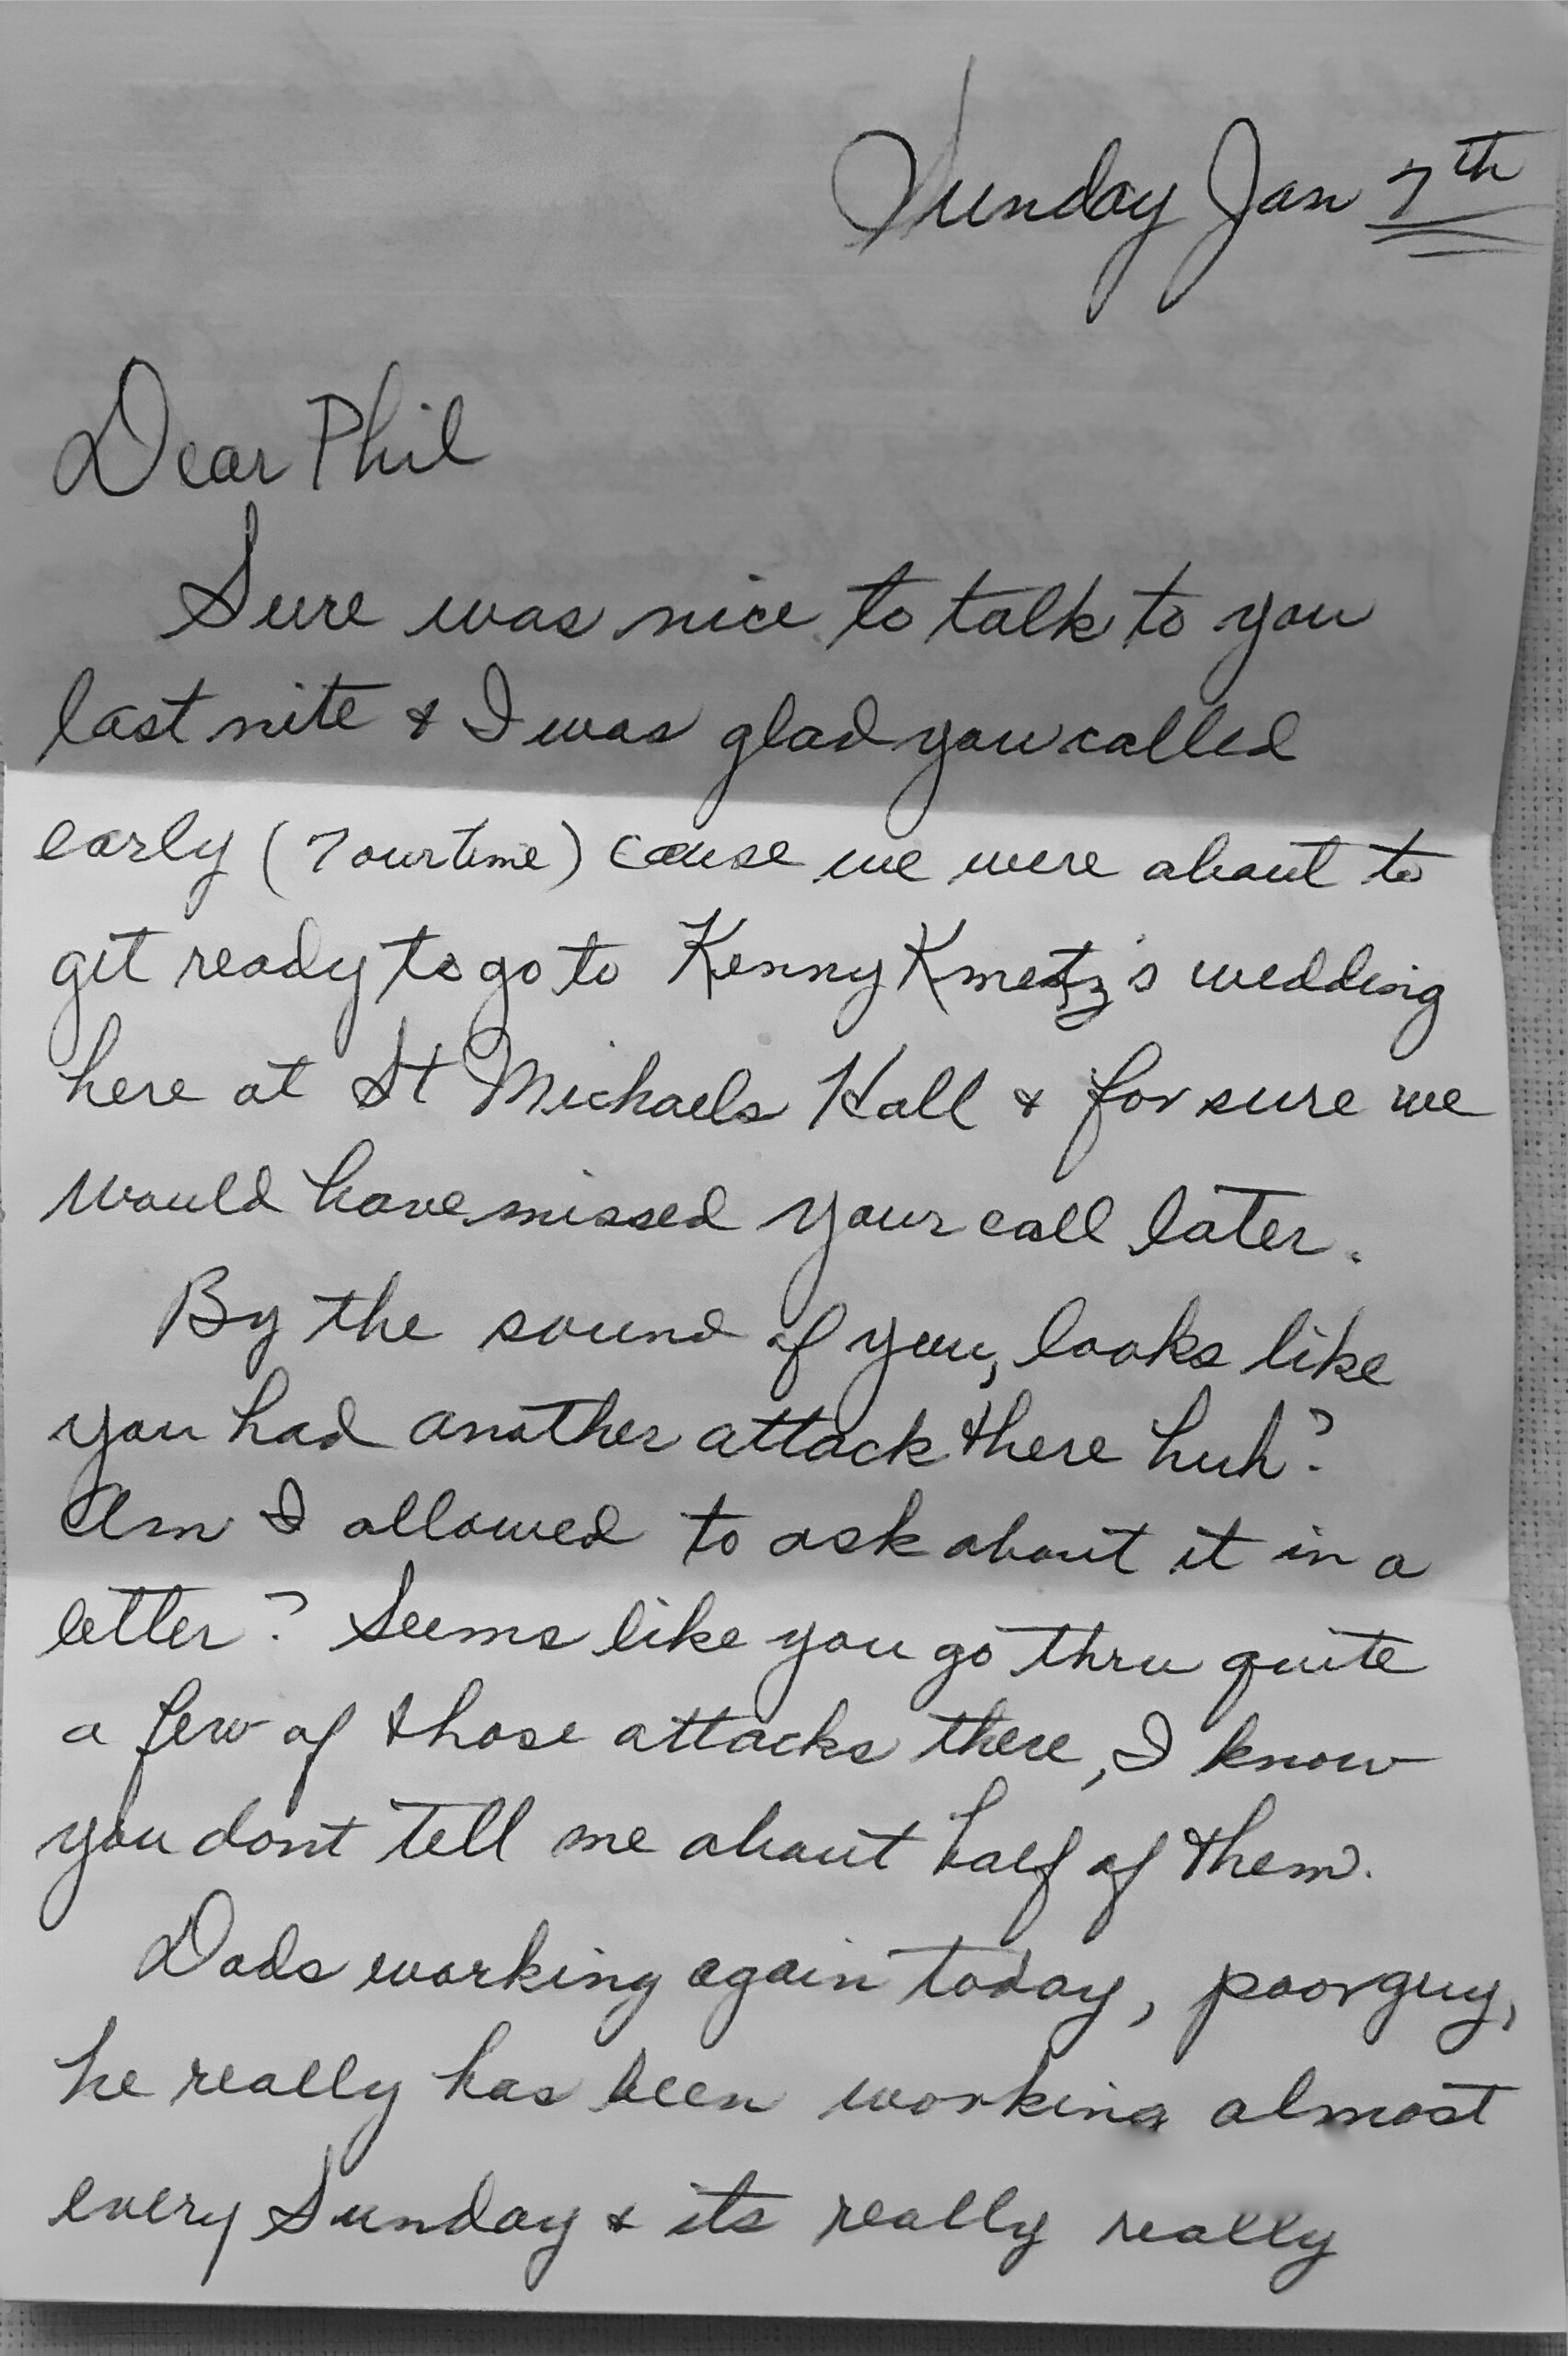 Sunday Jan 7th
Dear Phil
Sure was nice to talk to you
last nite & I was glad you called
early (7 our time) cause we were about to
git ready to go to Kenny Kmetz's wedding
here at St Michaels Hall & for sure we
would have missed your call later.
By the sound of you, looks like
you had another attack there huh?
Am I allowed to ask about it in a
letter? Seems like you go thru quite
a few of those attacks there, I know
you dont tell me about half of them.
Dads working again today, poor guy,
he really has been working almost
every Sunday & its really really